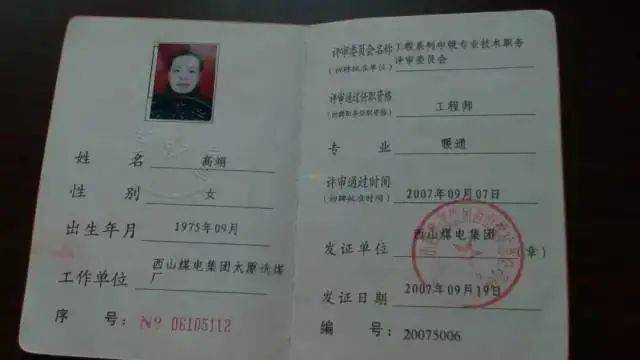 姓名 高翊
性别 女
出生年月 1975年09月
工作单位 西山煤电集团太原洗煤
厂
序号: №06105112
评审委员会名称 工程系列中级专业技术职务
(初聘批准单位) 评审委员会
评审通过任职资格 工程师
(初聘职务任职资格)
专业 暖通
评审通过时间 2007年09月07日
(初聘批准时间)
发证单位 西山煤电集团 (章)
发证日期 2007年09月19日
编号: 20075006